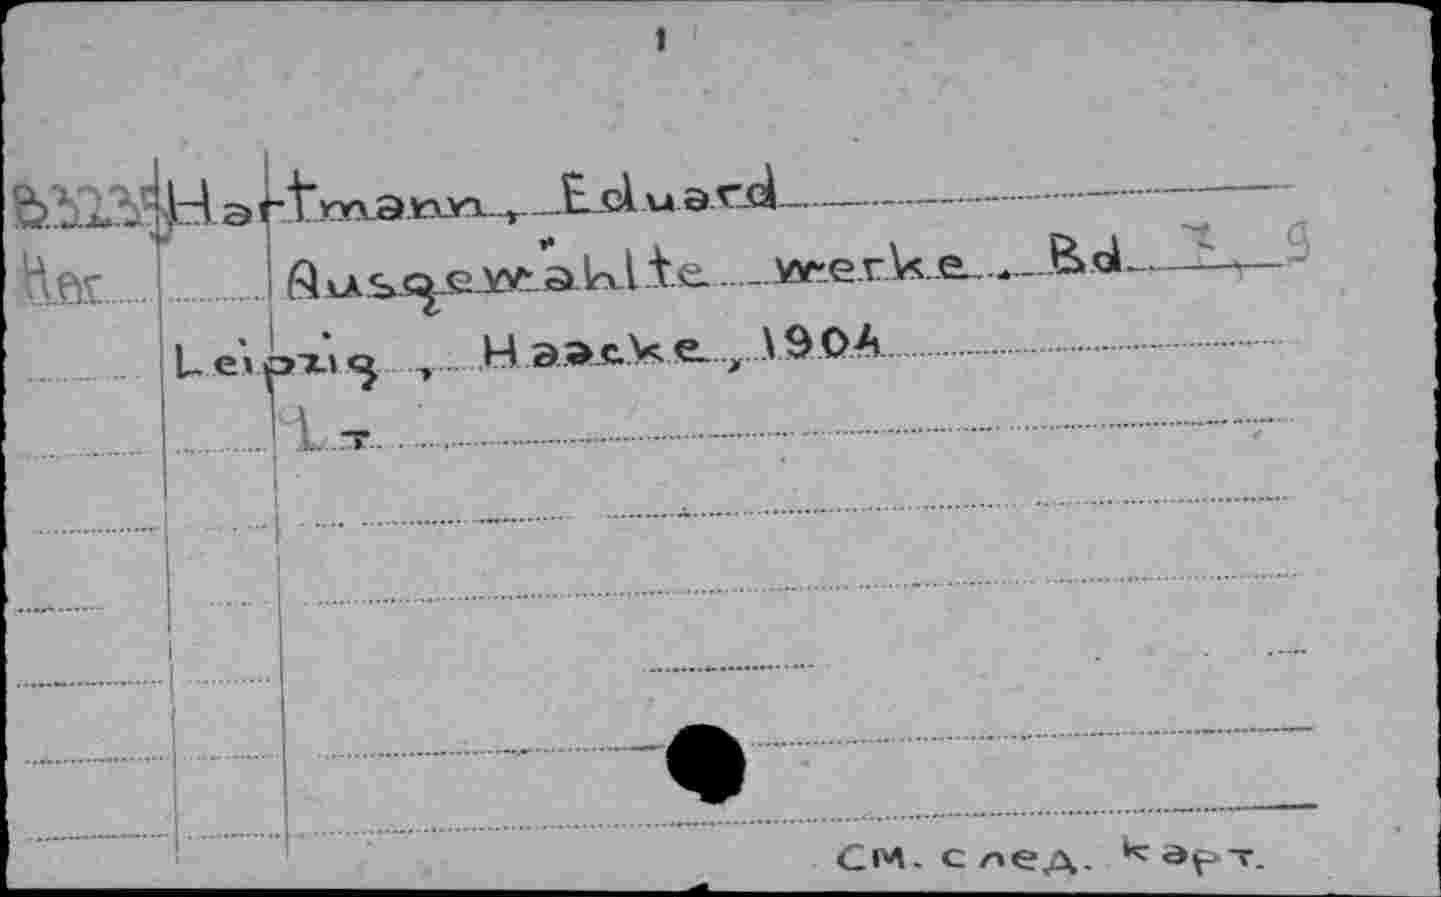 1
Hartmann, Eduard
Ausgewählte werke. Bd. 7, 9
Leipzig, Haacke, 1904
1 т
См. след. карт.